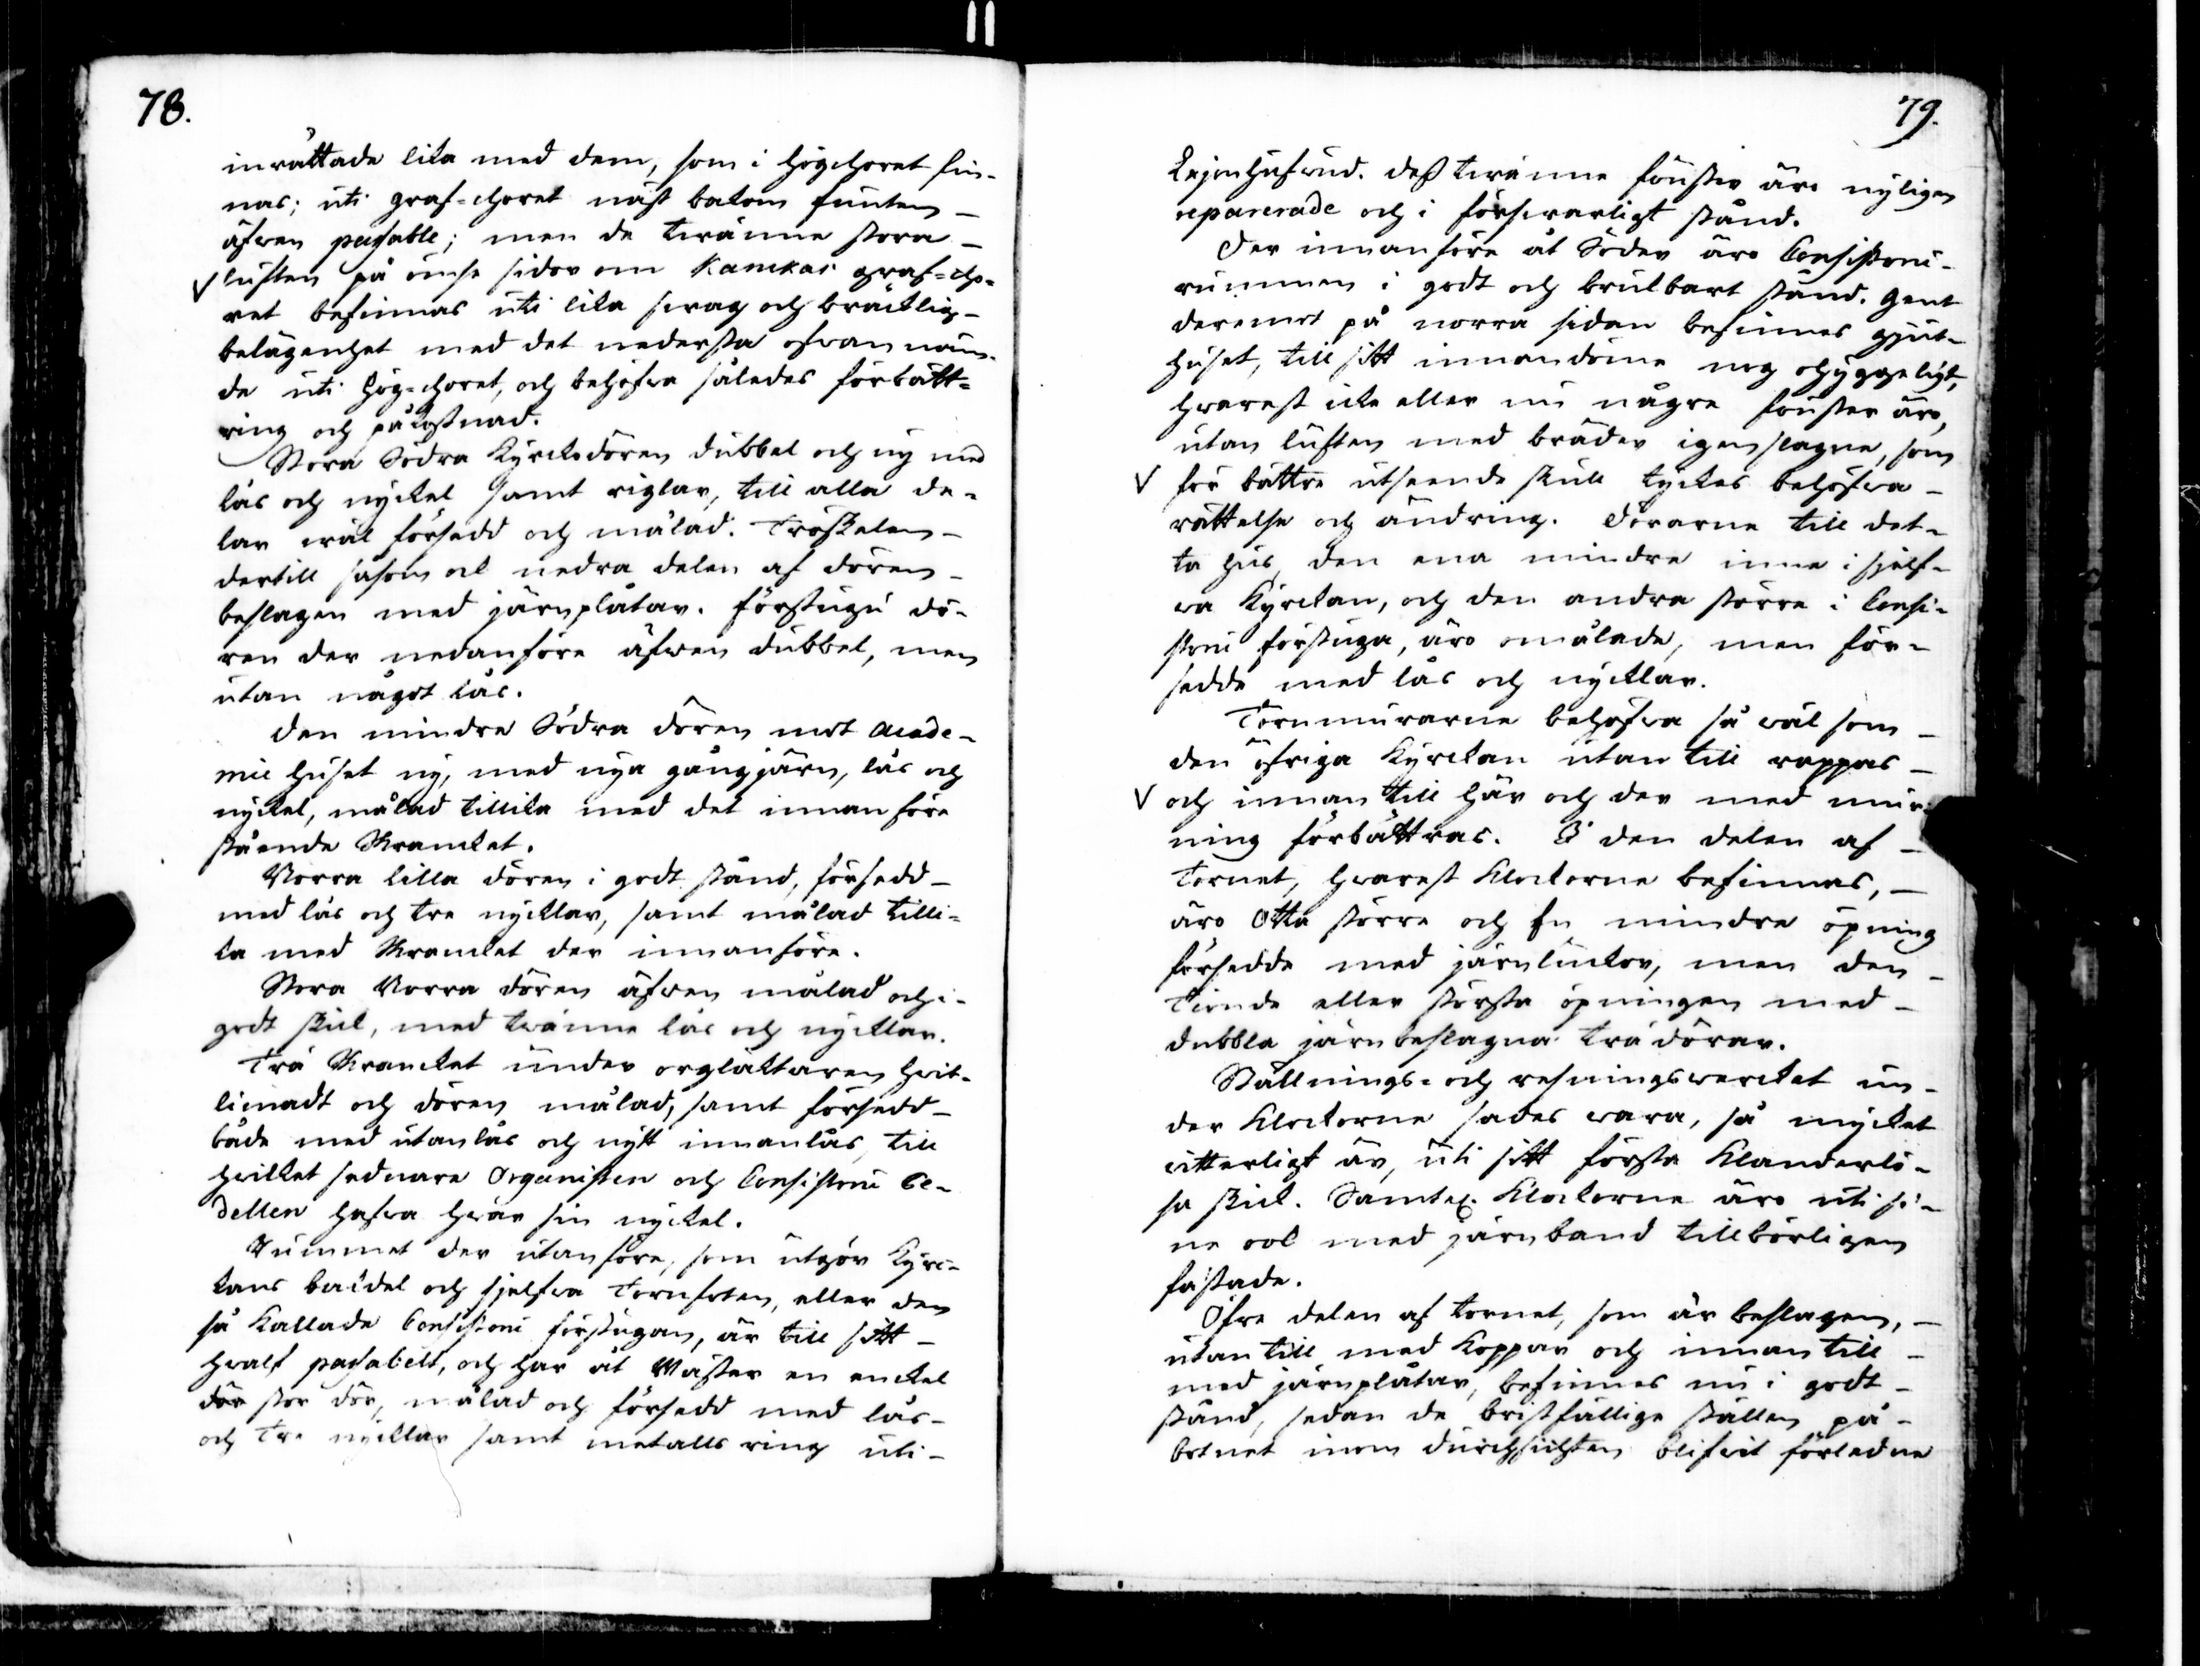 78.
inrättade lika med dem, som i högchoret fin-
nas; uti graf-choret näst bakom funten
äfwen passable; men de twänne stora
V luften på ömse sidor om Kankas graf-cho-
ret befinnas uti lika swag och bräcklig
belägenhet med det nedersta ofwannäm-
de uti Hög-choret, och behöfwa således förbätt-
ring och påkostnad.
Stora Södra Kyrckodören dubbel och ny med
lås och nyckel samt riglar, till alla de-
lar wäl försedd och målad. Tröskelen
dertill såsom ock nedra delen af dören
beslagen med järnplåtar. Förstugu dö-
ren der nedanföre äfwen dubbel, men
utan något lås.
Den mindre Södra dören mot Acade-
mie huset ny, med nya gångjärn, lås och
nyckel, målad tillika med det innanföre
stående Skrancket.
Norra lilla dören i godt stånd, försedd
med lås och tre nycklar, samt målad tilli-
ka med Skrancket der innanföre.
Stora Norra dören äfwen målad och i
godt skick, med twänne lås och nycklar.
Trä Skrancket under orgläktaren hwit-
limadt och dören målad, samt försedd
både med utanlås och nytt innanlås, till
hwilket sednare Organisten och Consistorii Be-
dellen hafwa hwar sin nyckel.
Rummet der utanföre, som utgör Kyrc-
kans bakdel och sjelfwa Tornfoten, eller den
så kallade Consistorii förstugan, är till sitt
hwalf passabelt, och har åt Wäster en enckel
dör stor dör, målad och försedd med lås
och Tre nycklar samt metalls ring uti
79.
Lejonhufwud. Dess twänne fönster äro nyligen
reparerade och i förswarligt stånd.
Der innanföre åt Söder äro Consistorii-
rummen i godt och brukbart stånd. Gent
deremot på norra sidan befinnes gjut-
huset, till sitt innandöme nog ohyggeligt,
hwarest icke eller nu några fönster äro,
utan luften med bräder igenslagne, som
V för bättre utseende skull tyckes behöfwa
rättelse och ändring. Dörarne till det-
ta hus, den ena mindre inne i sjelf-
wa Kyrckan, och den andra större i Consi-
storii förstuga, äro omålade, men för-
sedde med lås och nycklar.
Tornmurarne behöfwa så wäl som
den öfriga Kyrckan utan till rappas
V och innan till här och der med mur-
ning förbättras. I den delen af
Tornet, hwarest Klockorne befinnas,
äro Otta större och En mindre öpning
försedde med järnluckor, men den
Tionde eller största öpningen med
dubbla järnbeslagna trädörar.
Ställnings- och resningswercket un-
der Klockorne sades wara, så mycket
witterligt är, uti sitt första klanderlö-
sa skick. Samtel. Klockorne äro uti si-
ne ool med järnband tillbörligen
fästade.
Öfre delen af tornet, som är beslagen,
utan till med Koppar och innan till
med järnplåtar, befinnes nu i godt
stånd, sedan de bristfällige ställen på
botnet inom durchsichten blifwit förledne